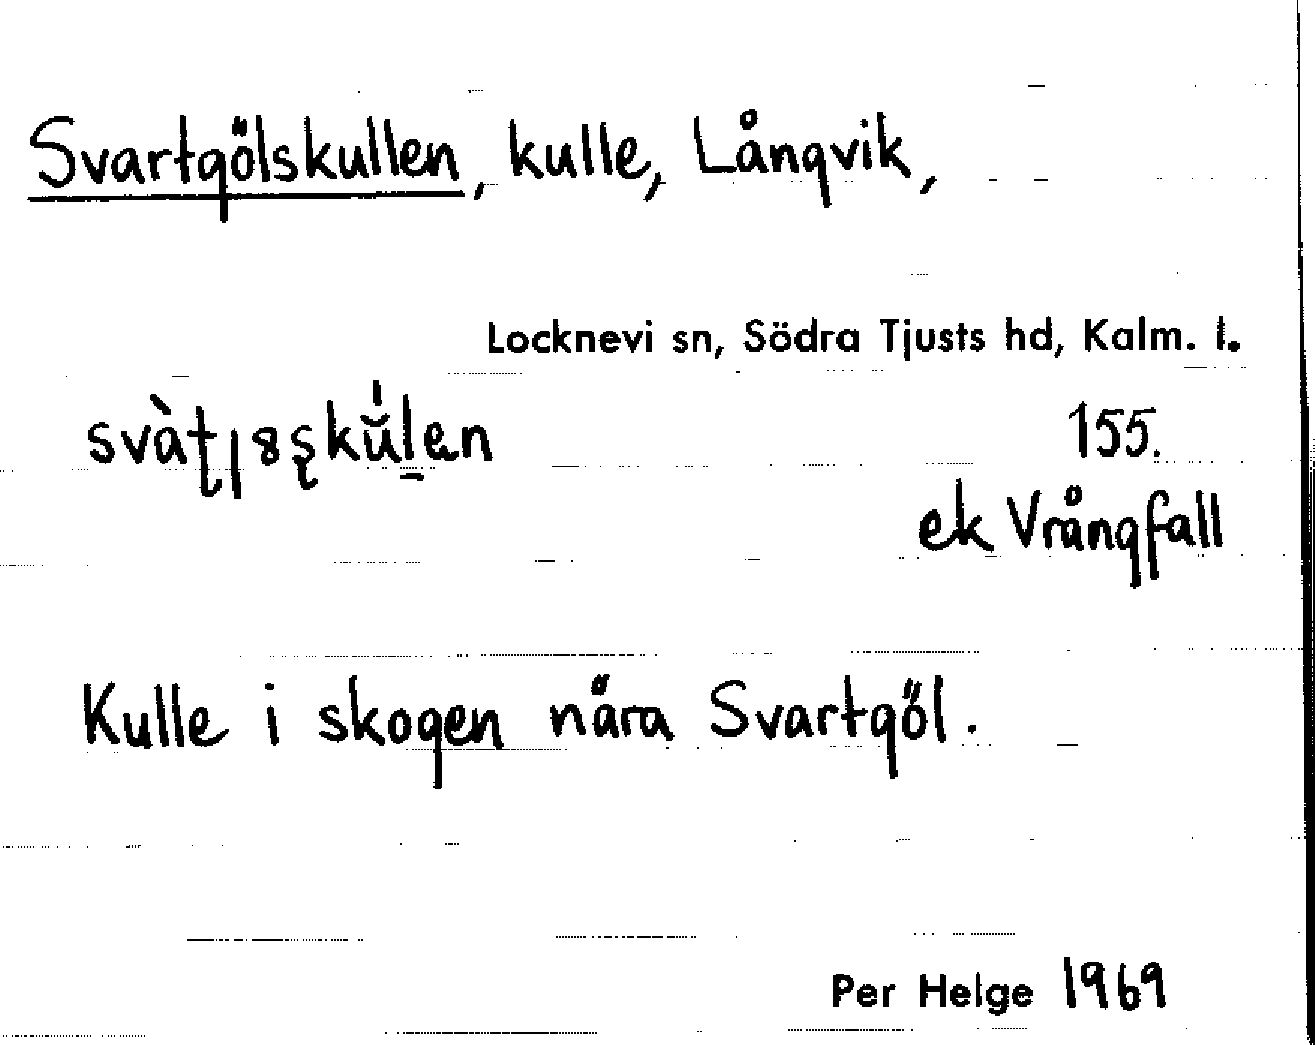 Svartgölskullen, kulle, Långvik,
Locknevi sn, Södra Tjusts hd, Kalm. l.
155.
ek Vrångfall
Kulle i skogen nära Svartgöl.
Per Helge 1969